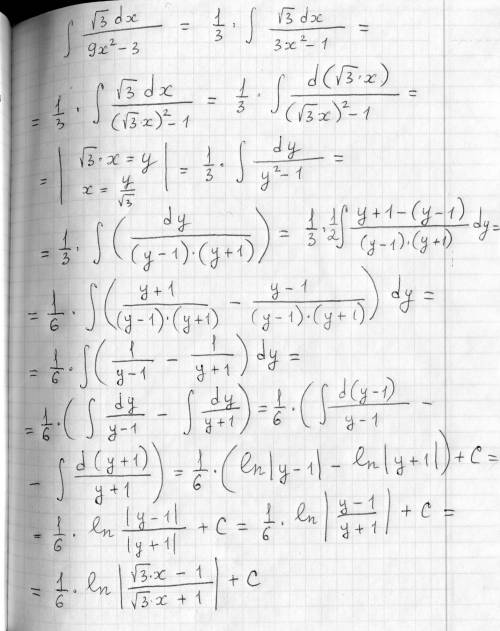 ∫ √3 dx / (9x² − 3) = 1/3 · ∫ √3 dx / (3x² − 1) =
= 1/3 · ∫ √3 dx / ((√3x)² − 1) = 1/3 · ∫ d(√3·x) / ((√3x)² − 1) =
= | √3·x = y, x = y/√3 | = 1/3 · ∫ dy / (y² − 1) =
= 1/3 · ∫ (dy / ((y−1)·(y+1))) = 1/3 · 1/2 ∫ (y+1−(y−1)) / ((y−1)·(y+1)) dy =
= 1/6 · ∫ ((y+1) / ((y−1)·(y+1)) − (y−1) / ((y−1)·(y+1))) dy =
= 1/6 · ∫ (1/(y−1) − 1/(y+1)) dy =
= 1/6 · (∫ dy/(y−1) − ∫ dy/(y+1)) = 1/6 · (∫ d(y−1)/(y−1) −
− ∫ d(y+1)/(y+1)) = 1/6 · (ln|y−1| − ln|y+1|) + C =
= 1/6 · ln |y−1|/|y+1| + C = 1/6 · ln |(y−1)/(y+1)| + C =
= 1/6 · ln |(√3·x − 1)/(√3·x + 1)| + C